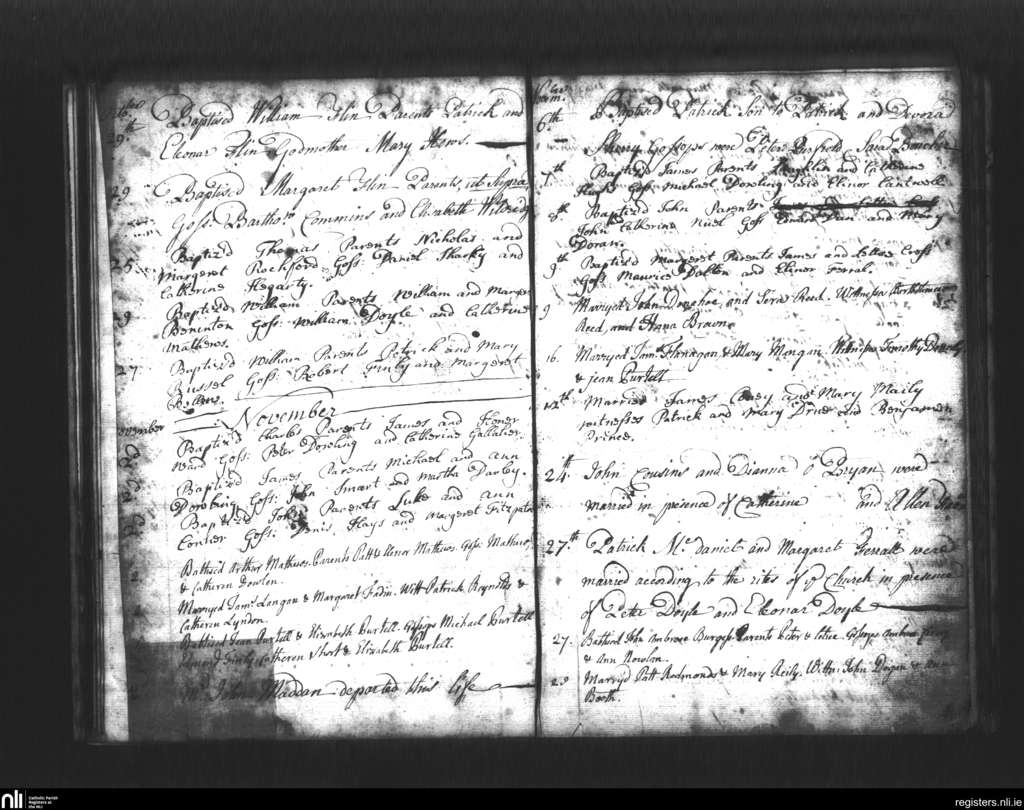 29th Baptised William Flin Parents Patrick and
Eleonar Flin Godmother Mary Hews.
29 Baptised Margaret Flin Parents, ut Supra,
Goss: Bartho. Commins and Elizabeth
25 Baptiz'd Thomas Parents Nicholas and
Margeret Rochford Goss: Daniel Sharky and
Catherine Hegarty.
29 Baptiz'd William Parents William and
Beninton Goss: William Doyle and Catherine
Mathews.
27 Baptiz'd William Parents Patrick and Mary
Russel Goss: Robert Finly and Margeret
November
November
Baptiz'd Charles Parents James and Honer
Ward Goss: Peter Dowling and Catherine Gallaher.
Baptiz'd James Parents Michael and Ann
Goss: John Smart and Martha Darby.
Baptiz'd John Parents Luke and Ann
Conner Goss: Denis Hays and Margeret Fitzpatrick
Battised Arthur Mathews. Parents Patt & Elonor Mathews. Goss: Mathew
& Catheren Dowlen.
Marryed Jams Langan & Margaret Fadin. Witt Patrick Reynolds &
Catheren Lyndon.
Battised Jean Burtell & Elizabeth Burtell. Gossops Michael Burtell
Catheren Short & Elizabeth Burtell.
John Maddan departed this life
6th Baptised Patrick Son to Patrick and Devora
Sherry Gossops were Peter Sara
7th Baptiz'd James Parents and Catherine
Goss: Michael Dowling and Elinor Cantwell
8th Baptiz'd John Parents
John Catherine Goss: and Mary
Doran.
9th Baptiz'd Margeret Parents James and Cross
Goss: Maurice Dalton and Elinor Farral.
9 Marryd John Donohoe, and Sera Reed. Wittnesses Bartholomew
Reed, and Hana Brown
16. Marryed Jams Flanagan & Mary Mangan. Wittnesses Timothy
& jean Burtell
12th Married James and Mary Maily
witnesses Patrick and Mary and Benjamin
Prince.
24th John Cousins and Dianna O Bryan were
married in presence of Catherine and Ellen
27th Patrick Mc daniel and Margaret were
married according to the rites of ye Church in presence
of Peter Doyle and Eleonar Doyle
27. Battised John Ambrose Burgess Parents Peter & Gossops Ambrose
& Ann Nowlan.
28 Marryd Patt Redmonds & Mary Reily. Wittn: John Dugan &
Booth.
nli
Catholic Parish
Registers at
the NLI
registers.nli.ie